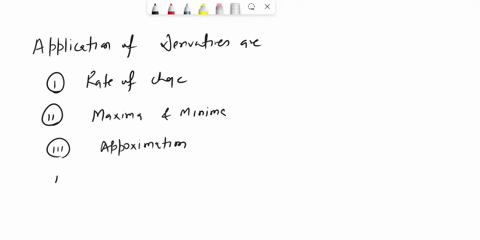 Application of Derivatives are
(i) Rate of chage
(ii) Maxima & Minima
(iii) Appoximation